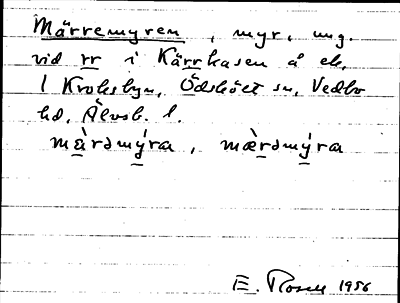 Märremyren, myr, ung.
vid rr i Kärrkasen å ek,
1 Kroksbyn, Ödskölt sn, Vedbo
hd, Älvsb. l.
màrəmy̍ra, mæ̀rəmy̍ra
E. Rosell 1956